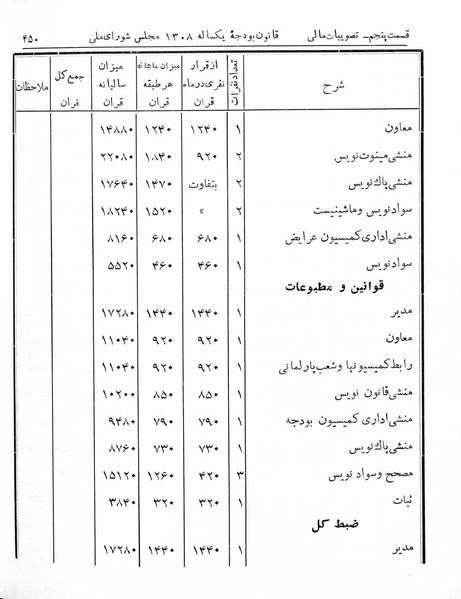 قسمت پنجم ـ تصویبات مالی قانون بودجهٔ یکساله ۱۳۰۸ مجلس شورای ملی ۴۵۰
شرح تعداد نفرات از قرار نفری در ماه قران میزان ماهانه هر طبقه قران میزان سالیانه قران جمع کل قران ملاحظات
معاون ۱ ۱۲۴۰ ۱۲۴۰ ۱۴۸۸۰
منشی مینوت نویس ۲ ۹۲۰ ۱۸۴۰ ۲۲۰۸۰
منشی پاك نویس ۲ بتفاوت ۱۴۷۰ ۱۷۶۴۰
سواد نویس و ماشینیست ۲ » ۱۵۲۰ ۱۸۲۴۰
منشی اداری کمیسیون عرایض ۱ ۶۸۰ ۶۸۰ ۸۱۶۰
سواد نویس ۱ ۴۶۰ ۴۶۰ ۵۵۲۰
قوانین و مطبوعات
مدیر ۱ ۱۴۴۰ ۱۴۴۰ ۱۷۲۸۰
معاون ۱ ۹۲۰ ۹۲۰ ۱۱۰۴۰
رابط کمیسیونها و شعب پارلمانی ۱ ۹۲۰ ۹۲۰ ۱۱۰۴۰
منشی قانون نویس ۱ ۸۵۰ ۸۵۰ ۱۰۲۰۰
منشی اداری کمیسیون بودجه ۱ ۷۹۰ ۷۹۰ ۹۴۸۰
منشی پاك نویس ۱ ۷۳۰ ۷۳۰ ۸۷۶۰
مصحح و سواد نویس ۳ ۴۲۰ ۱۲۶۰ ۱۵۱۲۰
ثبات ۱ ۳۲۰ ۳۲۰ ۳۸۴۰
ضبط کل
مدیر ۱ ۱۴۴۰ ۱۴۴۰ ۱۷۲۸۰